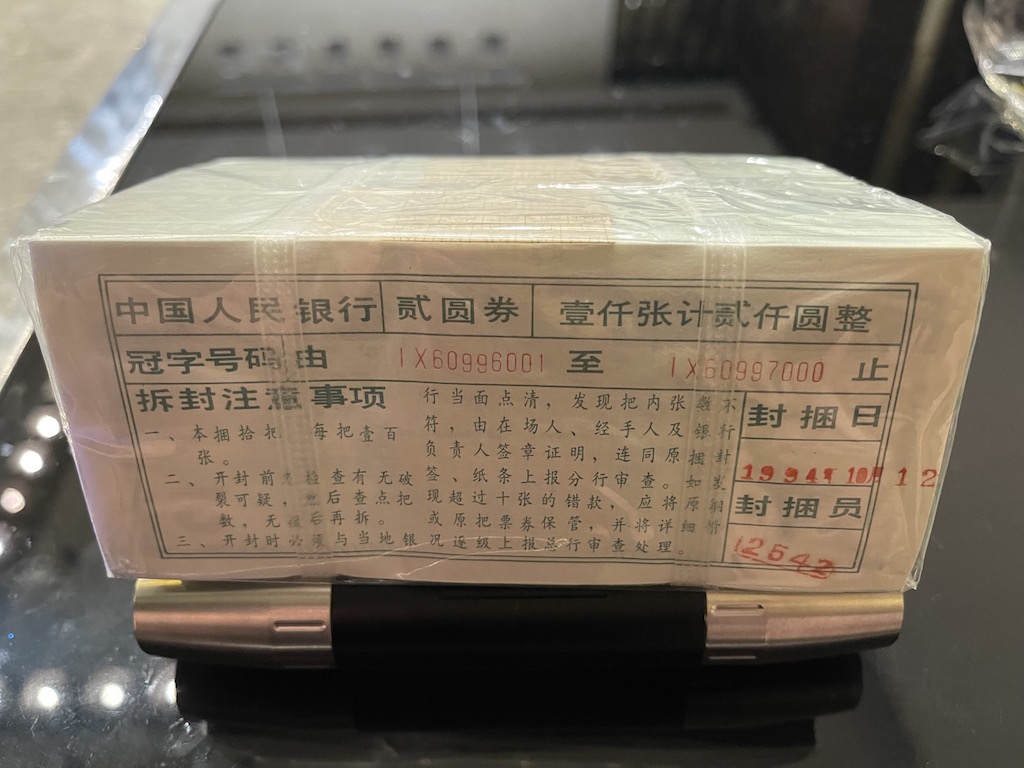 中国人民银行 贰圆券 壹仟张计贰仟圆整
冠字号码由 IX60996001 至 IX60997000 止
拆封注意事项
一、本捆拾把 每把壹百
张。
二、开封前 检查有无破
裂可疑，然后查点把
数，无 后再拆。
三、开封时必须与当地银
行当面点清，发现把内张数不
符，由在场人、经手人及银行
负责人签章证明，连同原捆封
签、纸条上报分行审查。如发
现超过十张的错款，应将原捆
或原把票券保管，并将详细情
况逐级上报总行审查处理。
封捆日
1994 10月12
封捆员
12642